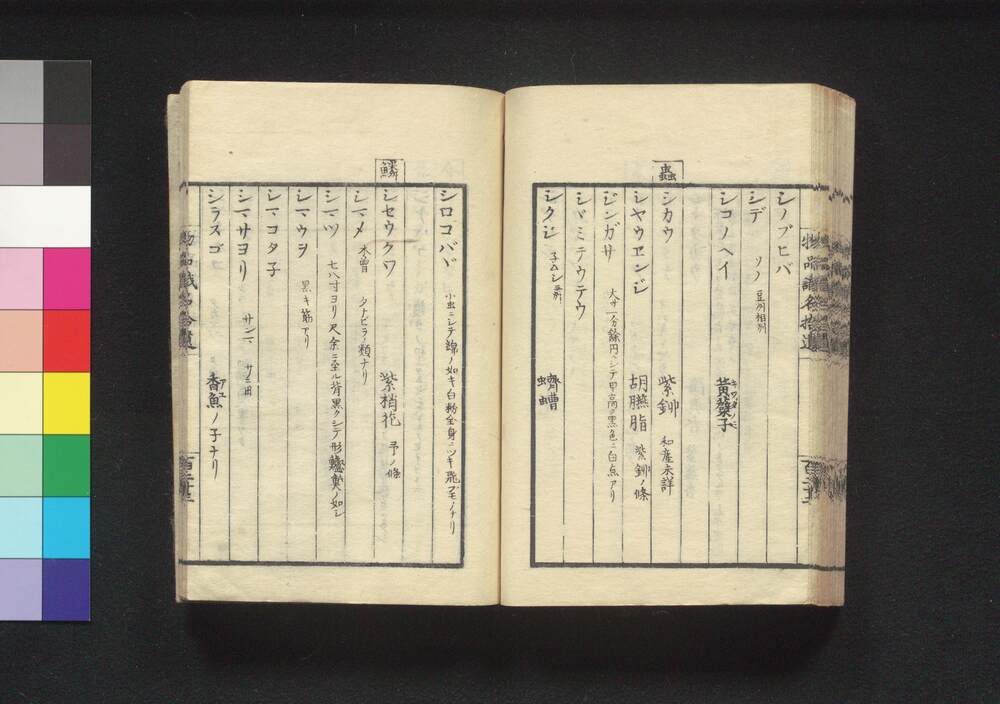 シノブヒバ
シデ ソノ
シコノヘイ 黄蘗子
蟲
シカウ 紫鉚 和産未詳
シヤウヱンジ 胡臙脂 紫鉚ノ條
ジンガサ 大サ一分餘円ニシテ甲高ク黒色ニ白点アリ
シヾミテウテウ
シクジ 蠐螬
物品識名拾遺
シロコバヾ 小虫ニシテ綿ノ如キ白粉全身ニツキ飛ブモノナリ
鱗
シセウクワ 紫梢花 予ノ條
シマメ 木曽 タトビラノ類ナリ
シマツ 七八寸ヨリ尺余ニ至ル背黒クシテ形ノ如シ
シマウヲ 黒キ筋アリ
シマコタ子
シマサヨリ サンマ
シラスゴ 香魚ノ子ナリ
物品識名拾遺